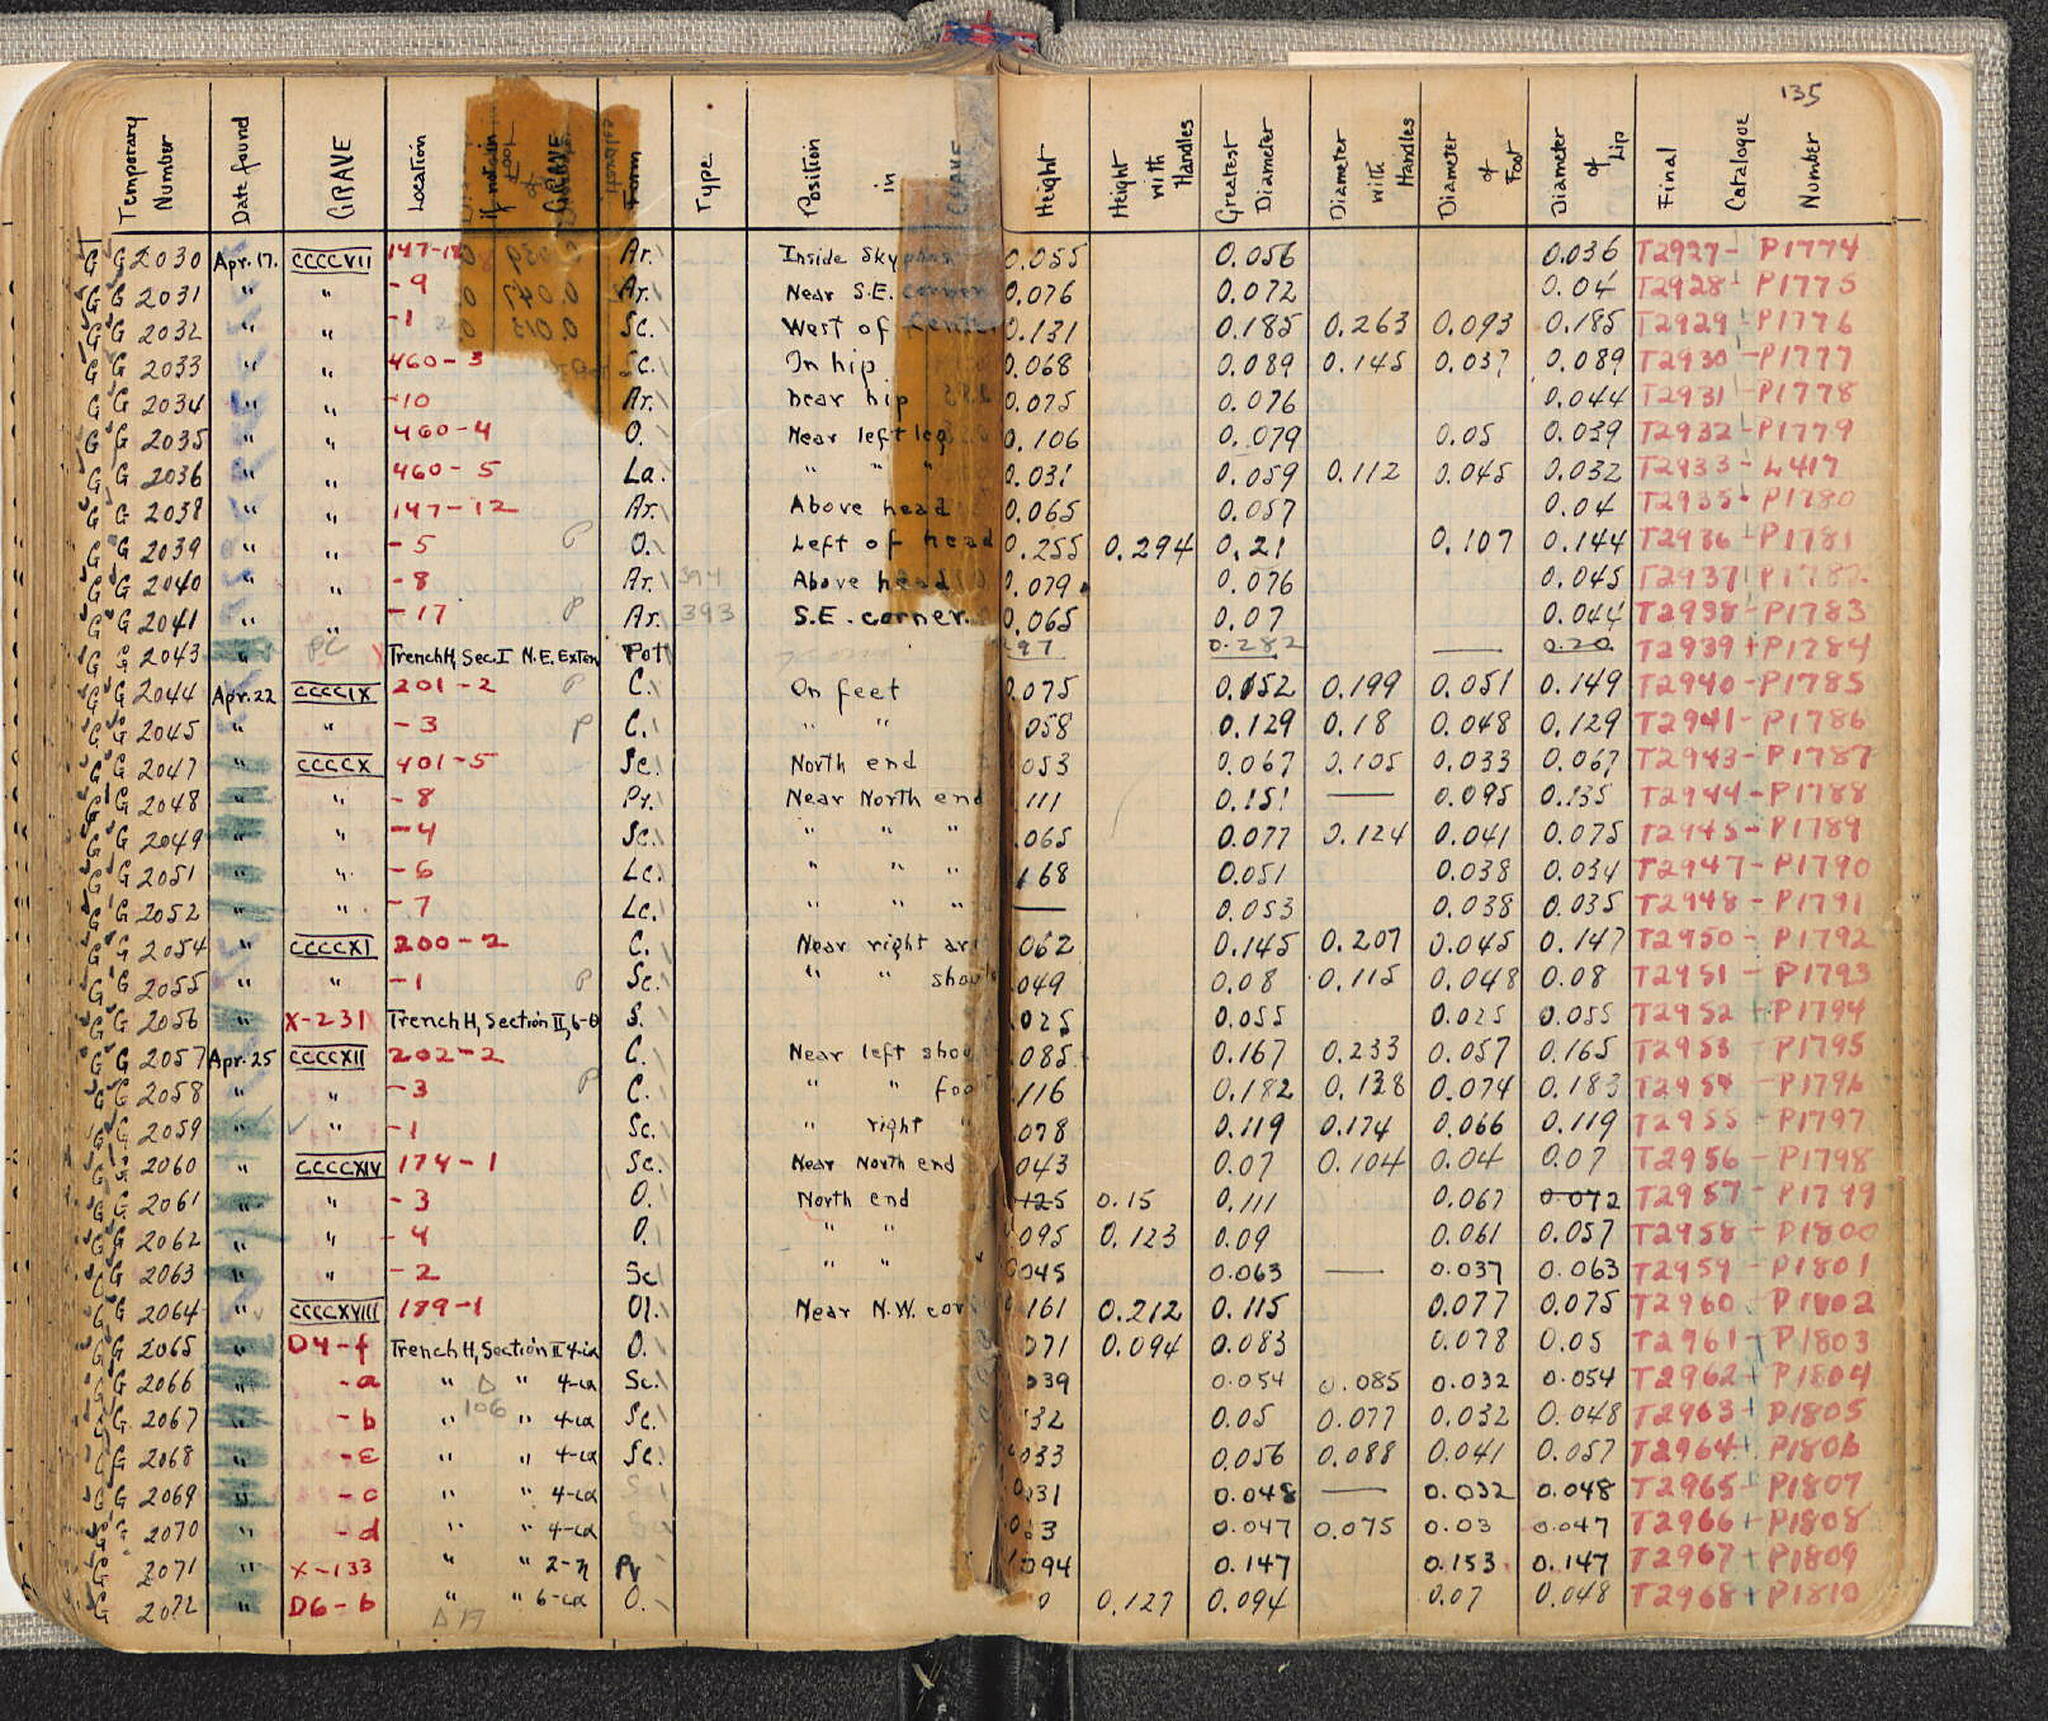 135
Temporary Number Date found GRAVE Location if not in GRAVE Form Type Position in GRAVE Height Height with Handles Greatest Diameter Diameter with Handles Diameter of Foot Diameter of Lip Final Catalogue Number
G G 2030 Apr. 17. CCCCVII 147-18 Ar. Inside Skyphos 0.055 0.056 0.036 T2927- P1774
G G 2031 " " -9 Ar. Near S.E. corner 0.076 0.072 0.04 T2928- P1775
G G 2032 " " -1 Sc. West of center 0.131 0.185 0.263 0.093 0.185 T2929-P1776
G G 2033 " " 460-3 Sc. In hip 0.068 0.089 0.145 0.037 0.089 T2930-P1777
G G 2034 " " -10 Ar. near hip 0.075 0.076 0.044 T2931-P1778
G G 2035 " " 460-4 O. Near left leg 0.106 0.079 0.05 0.039 T2932-P1779
G G 2036 " " 460-5 La. " " " 0.031 0.059 0.112 0.045 0.032 T2933-L417
G G 2038 " " 147-12 Ar. Above head 0.065 0.057 0.04 T2935-P1780
G G 2039 " " -5 P O. Left of head 0.255 0.294 0.21 0.107 0.144 T2936-P1781
G G 2040 " " -8 Ar. 394 Above head 0.079 0.076 0.045 T2937 P1782
G G 2041 " " -17 P Ar. 393 S.E. corner. 0.065 0.07 0.044 T2938-P1783
G G 2043 " PC Trench H, Sec. I N.E. Exten Pot 97 0.282 — 0.20 T2939+P1784
G G 2044 Apr. 22 CCCCIX 201-2 P C. On feet 0.075 0.152 0.199 0.051 0.149 T2940-P1785
G G 2045 " " -3 P C. " " 058 0.129 0.18 0.048 0.129 T2941-P1786
G G 2047 " CCCCX 401-5 Sc. North end 053 0.067 0.105 0.033 0.067 T2943-P1787
G G 2048 " " -8 Py. Near North end .111 0.151 — 0.095 0.135 T2944-P1788
G G 2049 " " -4 Sc. " " " .065 0.077 0.124 0.041 0.075 T2945-P1789
G G 2051 " " -6 Lc. " " " 168 0.051 0.038 0.034 T2947-P1790
G G 2052 " " -7 Lc. " " " — 0.053 0.038 0.035 T2948-P1791
G G 2054 " CCCCXI 200-2 C. Near right ar 062 0.145 0.207 0.045 0.147 T2950-P1792
G G 2055 " " -1 P Sc. " " should .049 0.08 0.115 0.048 0.08 T2951-P1793
G G 2056 " X-231 Trench H, Section II, 6-θ S. .025 0.055 0.025 0.055 T2952+P1794
G G 2057 Apr. 25 CCCCXII 202-2 C. Near left shou .085 0.167 0.233 0.057 0.165 T2953-P1795
G G 2058 " " -3 P C. " " foo .116 0.182 0.128 0.074 0.183 T2954-P1796
G G 2059 " " -1 Sc. " right " .078 0.119 0.174 0.066 0.119 T2955-P1797
G G 2060 " CCCCXIV 174-1 Sc. Near North end 043 0.07 0.104 0.04 0.07 T2956-P1798
G G 2061 " " -3 O. North end 125 0.15 0.111 0.067 0.072 T2957-P1799
G G 2062 " " -4 O. " " 095 0.123 0.09 0.061 0.057 T2958-P1800
G G 2063 " " -2 Sc " " 045 0.063 — 0.037 0.063 T2959-P1801
G G 2064 " CCCCXVIII 189-1 Ol. Near N.W. cor 161 0.212 0.115 0.077 0.075 T2960 P1802
G G 2065 " D4-f Trench H, Section II 4-ια O. 071 0.094 0.083 0.078 0.05 T2961+P1803
G G 2066 " -a " D " 4-ια Sc. 039 0.054 0.085 0.032 0.054 T2962+P1804
G G 2067 " -b " 106 " 4-ια Sc. 32 0.05 0.077 0.032 0.048 T2963+P1805
G G 2068 " -e " " 4-ια Sc. 033 0.056 0.088 0.041 0.057 T2964+P1806
G G 2069 " -c " " 4-ια S 031 0.048 — 0.032 0.048 T2965+P1807
G G 2070 " -d " " 4-ια 0 3 0.047 0.075 0.03 0.047 T2966+P1808
G 2071 " X-133 " " 2-η Py 094 0.147 0.153 0.147 T2967+P1809
G 2072 " D6-b " " 6-ια O. 0 0.127 0.094 0.07 0.048 T2968+P1810
D 19